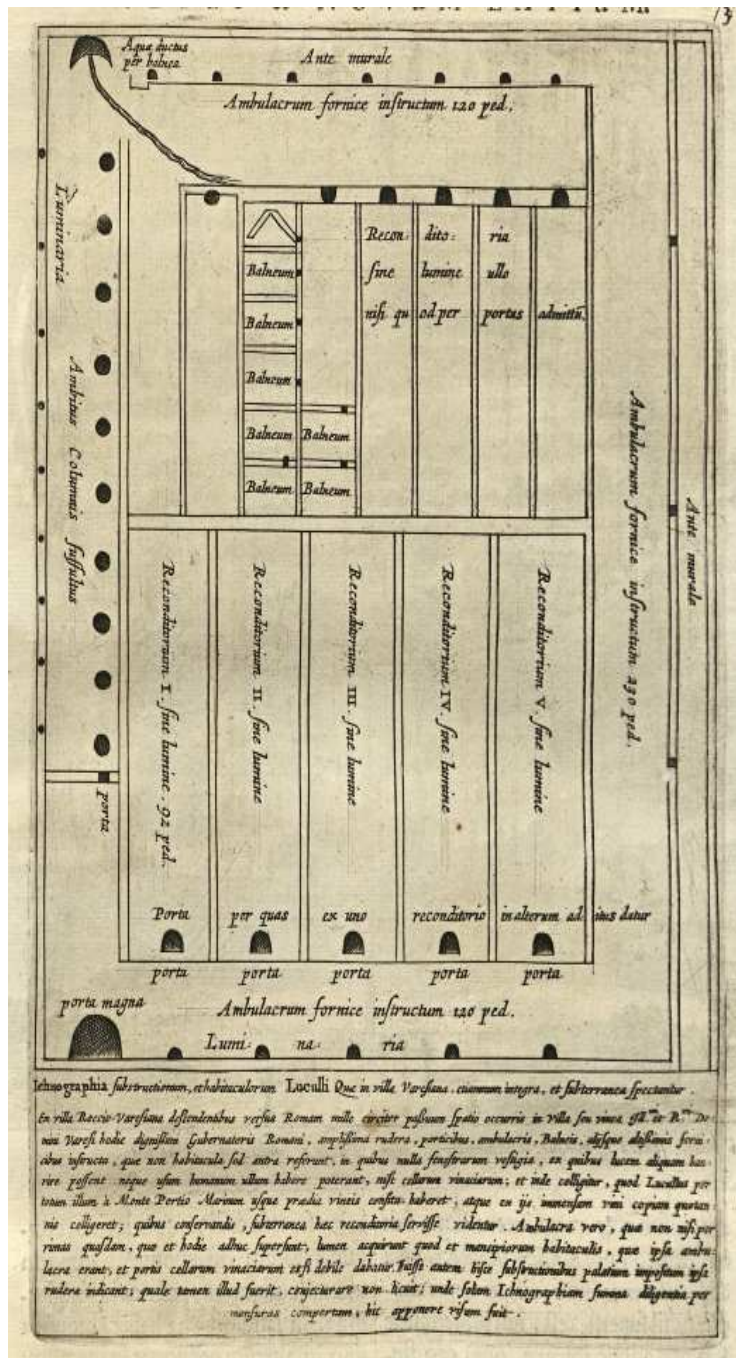 13
Aquæ ductus
per balnea
Ante murale
Ambulacrum fornice instructum 120 ped.
Luminaria
Ambitus Columnis suffultus
Recon: dito: ria
sine lumine ullo
nisi qu od per portus admittū.
Balneum
Balneum
Balneum
Balneum Balneum
Balneum Balneum
Ambulacrum fornice instructum 230 ped.
Ante murale
Reconditorium I. sine lumine. 92 ped.
Reconditorium II. sine lumine
Reconditorium III. sine lumine
Reconditorium IV. sine lumine
Reconditorium V. sine lumine
porta
Porta per quas ex uno reconditorio in alterum ad itus datur
porta porta porta porta porta
porta magna
Ambulacrum fornice instructum 120 ped.
Lumi: na: ria
Ichnographia substructionum, et habitaculorum Luculli Quæ in villa Varesiana etiamnum integra, et subterranea spectantur.
En villa Roccio-Varesiana descendentibus versus Romam mille circiter passuum spatio occurris in villa seu vinea Ill.mi et R.mi Do-
mini Varesi hodie dignissimi Gubernatoris Romani, amplissima rudera, porticibus, ambulacris, Balneis, alijsque altissimis forni-
cibus instructa, quæ non habitacula sed antra referunt, in quibus nulla fenestrarum vestigia, ex quibus lucem aliquam hau-
rire possent neque usum humanum ullum habere poterant, nisi cellarum vinaciarum; et inde colligitur, quod Lucullus per
totum illum à Monte Portio Marinum usque prædia vineis consita haberet, atque ex ijs immensam vini copiam quotan-
nis colligeret; quibus conservandis, subterranea hæc reconditoria servisse videntur. Ambulacra vero, quæ non nisi per
rimas quasdam, quæ et hodie adhuc supersunt, lumen acquirunt quod et mancipiorum habitaculis, quæ ipsa ambu-
lacra erant, et portis cellarum vinaciarum etsi debile dabatur. Fuisse autem hisce substructionibus palatium impositum ipsa
rudera indicant; quale tamen illud fuerit, conjecturare non licuit; unde solum Ichnographiam summa diligentia per
mensuras compertam, hic apponere visum fuit.